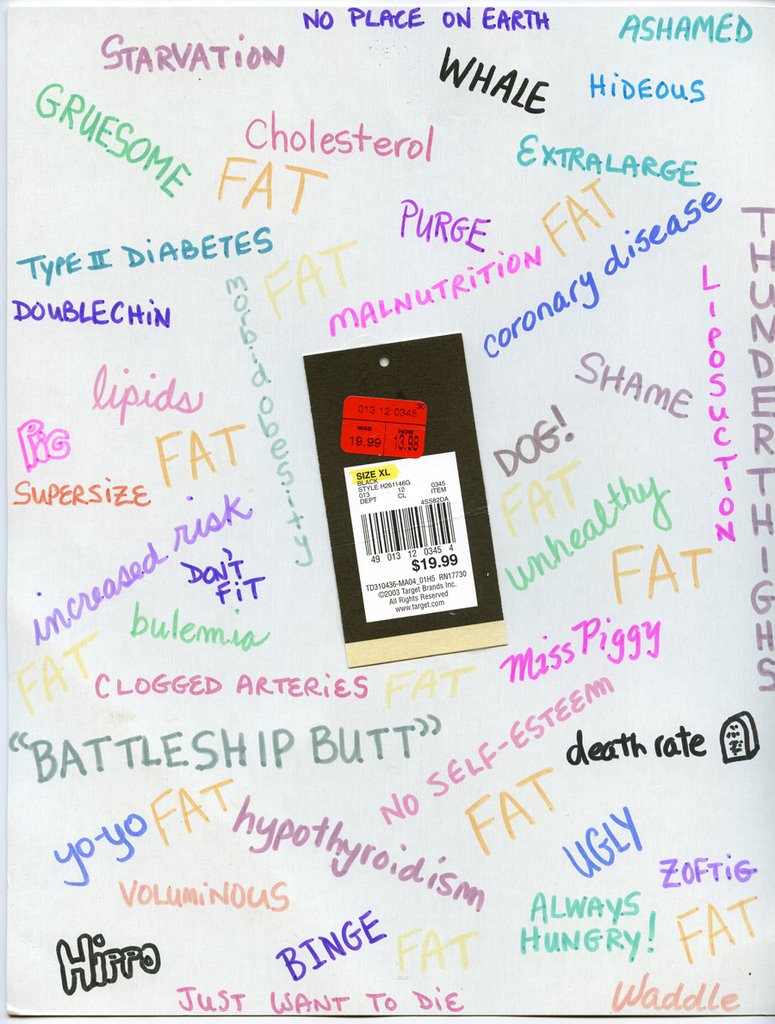 NO PLACE ON EARTH
ASHAMED
STARVATION
WHALE
HiDEOUS
GRUESOME
Cholesterol
EXTRALARGE
FAT
PURGE
FAT
coronary disease
TYPE II DiABETES
FAT
MALNUTRITION
THUNDERTHIGHS
DOUBLECHiN
morbid obesity
LiPOSUCTION
lipids
SHAME
PiG
FAT
DOG!
SUPERSIZE
FAT
unhealthy
increased risk
DON'T
FiT
FAT
bulemia
FAT
CLOGGED ARTERIES
FAT
Miss Piggy
"BATTLESHIP BUTT"
NO SELF-ESTEEM
death rate
yo-yo
FAT
hypothyroidism
FAT
UGLY
ZOFTiG
VOLUMiNOUS
ALWAYS
HUNGRY!
FAT
HiPPO
BINGE
FAT
JUST WANT TO DiE
Waddle
013 12 0345 30
WAS NOW
19.99 13.98
SIZE XL
BLACK
STYLE H261146G
013 12 0345
DEPT CL ITEM
4SS82DA
49 013 12 0345 4
$19.99
TD310436-MA04_01H5 RN17730
©2003 Target Brands Inc.
All Rights Reserved
www.target.com